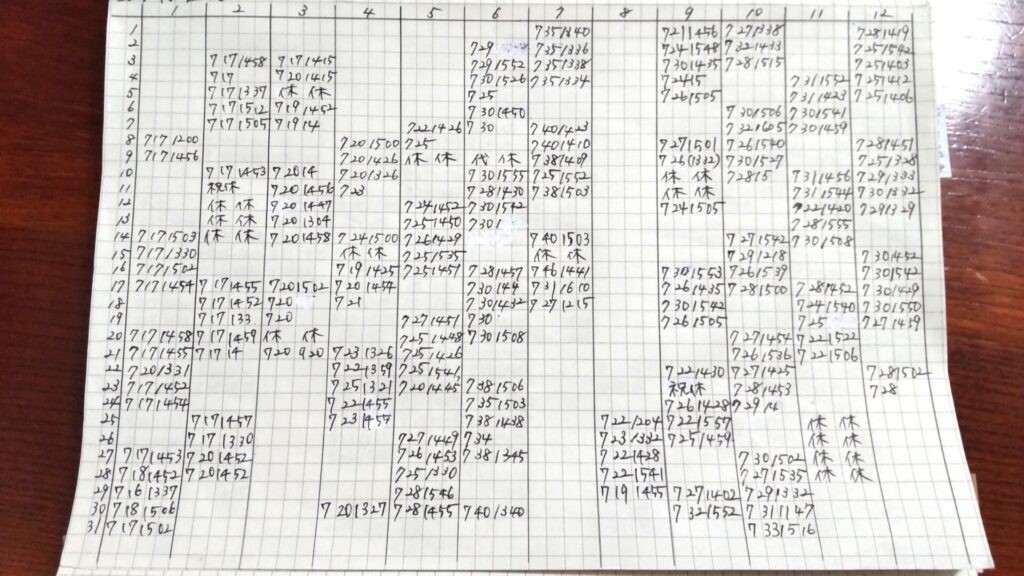 1 2 3 4 5 6 7 8 9 10 11 12
1 7351340 7211456 7271338 7281419
2 729 7351336 7241548 7321433 7251542
3 7171458 7171415 7291552 7351338 7301435 7281515 7251403
4 717 7201415 7301526 7351334 72415 7311552 7251412
5 7171337 休 休 725 7261505 7311423 7251406
6 7171512 7191452 7301450 7301506 7301541
7 7171505 71914 7221426 730 7401423 7321605 7301459
8 7171200 7201500 725 7401410 7271501 7261540 7281451
9 7171456 7201426 休 休 代 休 7381409 726(1332) 7301527 7251328
10 7171453 72014 7201326 7301535 7251552 休 休 72815 7311456 7291333
11 祝休 7201456 723 7281430 7381503 休 休 7311544 7301332
12 休 休 7201447 7241452 7301542 7241505 7221420 7291329
13 休 休 7201304 7251450 7301 7281555
14 7171503 休 休 7201458 7241500 7261429 7401503 7271542 7301508
15 7171330 休 休 7251535 休 休 7291218 7301452
16 7171502 7191425 7251451 7281457 7461441 7301553 7261539 7301542
17 7171454 7171455 7201502 7201454 730144 7311610 7261435 7281500 7281452 7301429
18 7171452 720 721 7301432 7271215 7301542 7241540 7301550
19 717133 720 7271451 730 7261505 725 7271419
20 7171458 7171459 休 休 7251448 7301508 7271454 7221522
21 7171455 71714 720920 7231326 7251426 7261536 7221506
22 7201331 7221359 7251541 7221430 7271425 7281502
23 7171452 7251321 7201445 7381506 祝休 7281453 728
24 7171454 7221455 7351503 7261428 72914
25 7171457 7231457 7381438 7221204 7221557 休 休
26 7171330 7271449 734 7231332 7251459 休 休
27 7171453 7201452 7261453 7381345 7221428 7301502 休 休
28 7181452 7201452 7251330 7221541 7271535 休 休
29 7161337 7281546 7191455 7271402 7291332
30 7181506 7201327 7281455 7401340 7321552 7311147
31 7171502 7331516